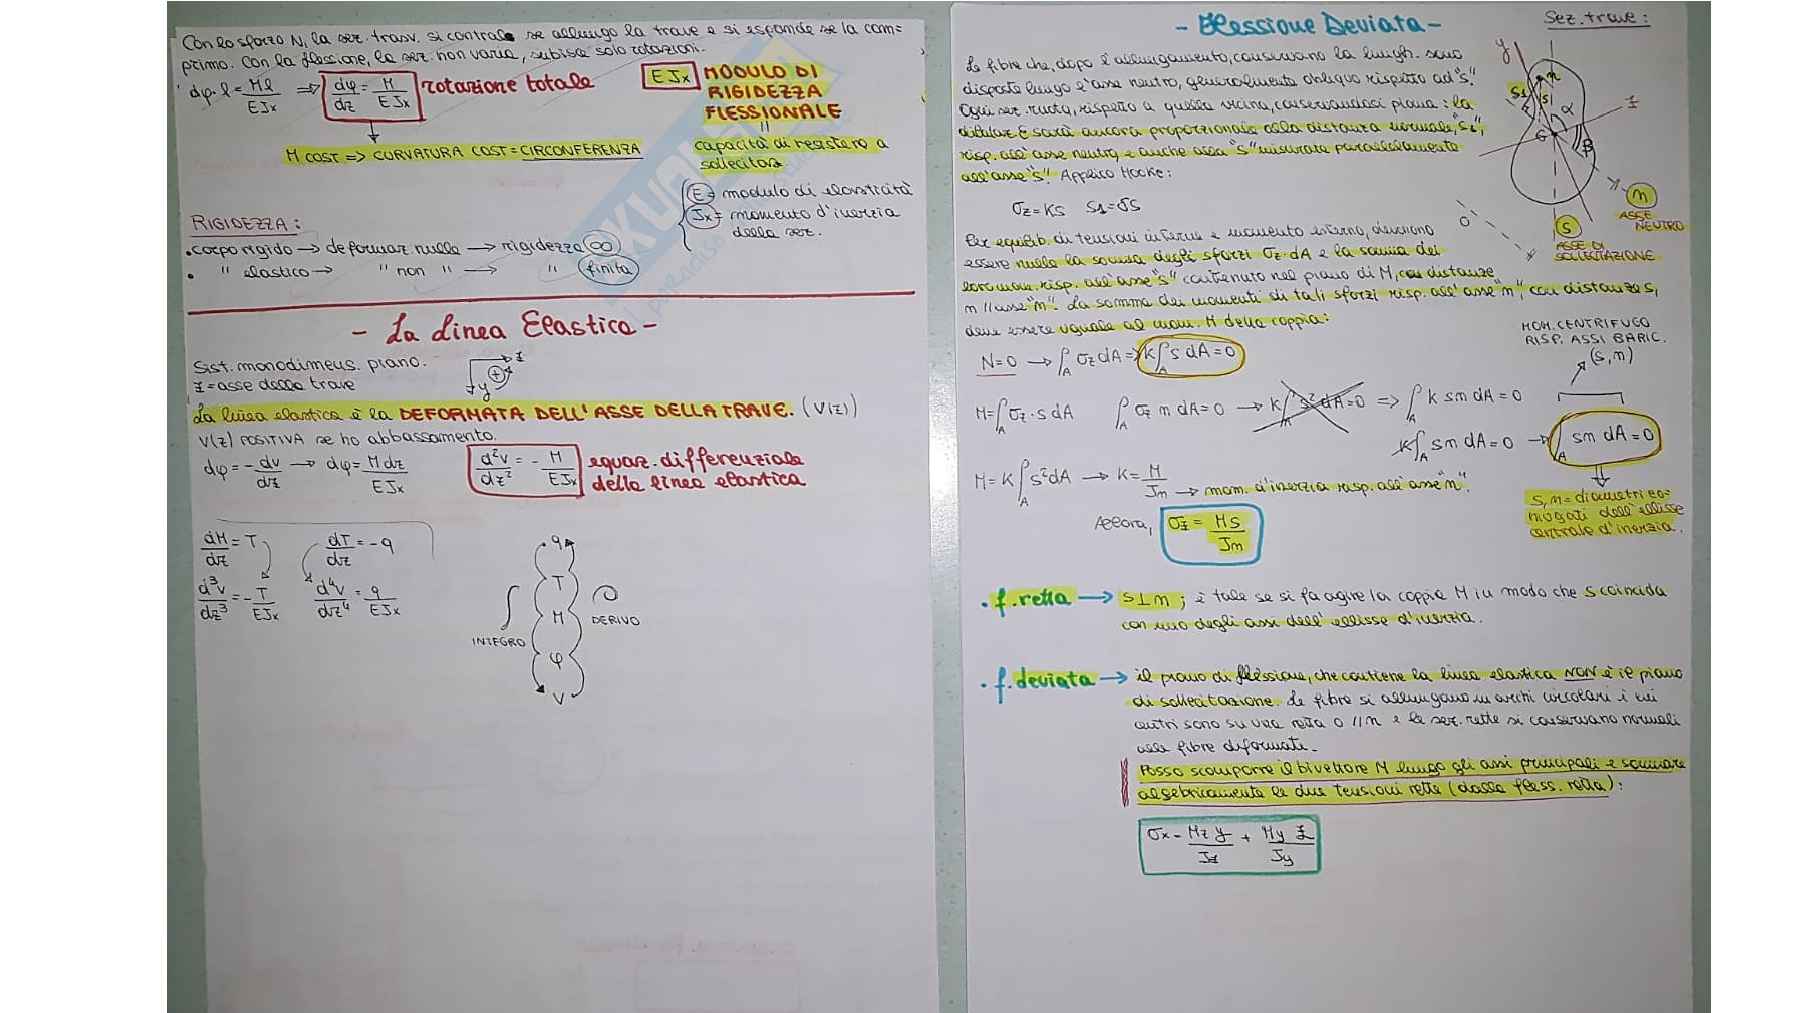 Con lo sforzo N, la sez. trasv. si contrae se allungo la trave e si espande se la com=
primo. Con la flessione, la sez. non varia, subisce solo rotazioni.
dφ·l = Ml/EJx ⇒ dφ/dz = M/EJx rotazione totale
EJx MODULO DI
RIGIDEZZA
FLESSIONALE
=
capacità di resistere a
sollecitaz.
M COST => CURVATURA COST = CIRCONFERENZA
E = modulo di elasticità
Jx = momento d'inerzia
della sez.
RIGIDEZZA:
• corpo rigido → deformaz. nulla → rigidezza ∞
• " elastico → " non " → " finita
- La Linea Elastica -
Sist. monodimens. piano.
z = asse della trave
z
+
y
La linea elastica è la DEFORMATA DELL'ASSE DELLA TRAVE. (V(z))
V(z) POSITIVA se ho abbassamento.
dφ = -dv/dz → dφ = M dz/EJx
d²v/dz² = - M/EJx equaz. differenziale
della linea elastica
dM/dz = T dT/dz = -q
d³v/dz³ = -T/EJx d⁴v/dz⁴ = q/EJx
q
T
M
φ
V
INTEGRO
DERIVO
- Flessione Deviata -
Sez. trave:
Le fibre che, dopo l'allungamento, conservano la lungh. sono
disposte lungo l'asse neutro, generalmente obliquo rispetto ad "s".
Ogni sez. ruota, rispetto a quella vicina, conservandosi piana: la
dilataz. ε sarà ancora proporzionale alla distanza normale "s1",
risp. all'asse neutro, e anche alla "s" misurata parallelamente
all'asse "s". Applico Hooke:
y
n
s1
s
α
z
G
β
n
ASSE
NEUTRO
O
s
ASSE DI
SOLLECITAZIONE
σz = Ks s1 = Js
Per equilib. di tensioni interne e momento esterno, dovranno
essere nulle la somma degli sforzi σz·dA e la somma dei
loro mom. risp. all'asse "s" contenuto nel piano di M, con distanze
n // asse "n". La somma dei momenti di tali sforzi risp. all'asse "n", con distanze s,
deve essere uguale al mom. M della coppia:
N=0 → ∫A σz dA => K∫A s dA = 0
MOM. CENTRIFUGO
RISP. ASSI BARIC.
(s, n)
M = ∫A σz·s dA ∫A σz n dA = 0 → K∫A s² dA = 0 => ∫A K sn dA = 0
K∫A sn dA = 0 → ∫A sn dA = 0
M = K∫A s² dA → K = M/Jn → mom. d'inerzia risp. all'asse "n".
s, n = diametri co=
niugati dell'ellisse
centrale d'inerzia.
Allora, σz = Ms/Jn
• f. retta → s⊥n; è tale se si fa agire la coppia M in modo che s coincida
con uno degli assi dell'ellisse d'inerzia.
• f. deviata → il piano di flessione, che contiene la linea elastica NON è il piano
di sollecitazione. Le fibre si allungano in archi circolari i cui
centri sono su una retta O // n e le sez. rette si conservano normali
alla fibre deformate.
Posso scomporre il bivettore M lungo gli assi principali e sommare
algebricamente le due tensioni rette (dalla fless. retta):
σx = Mz y/Jz + My z/Jy